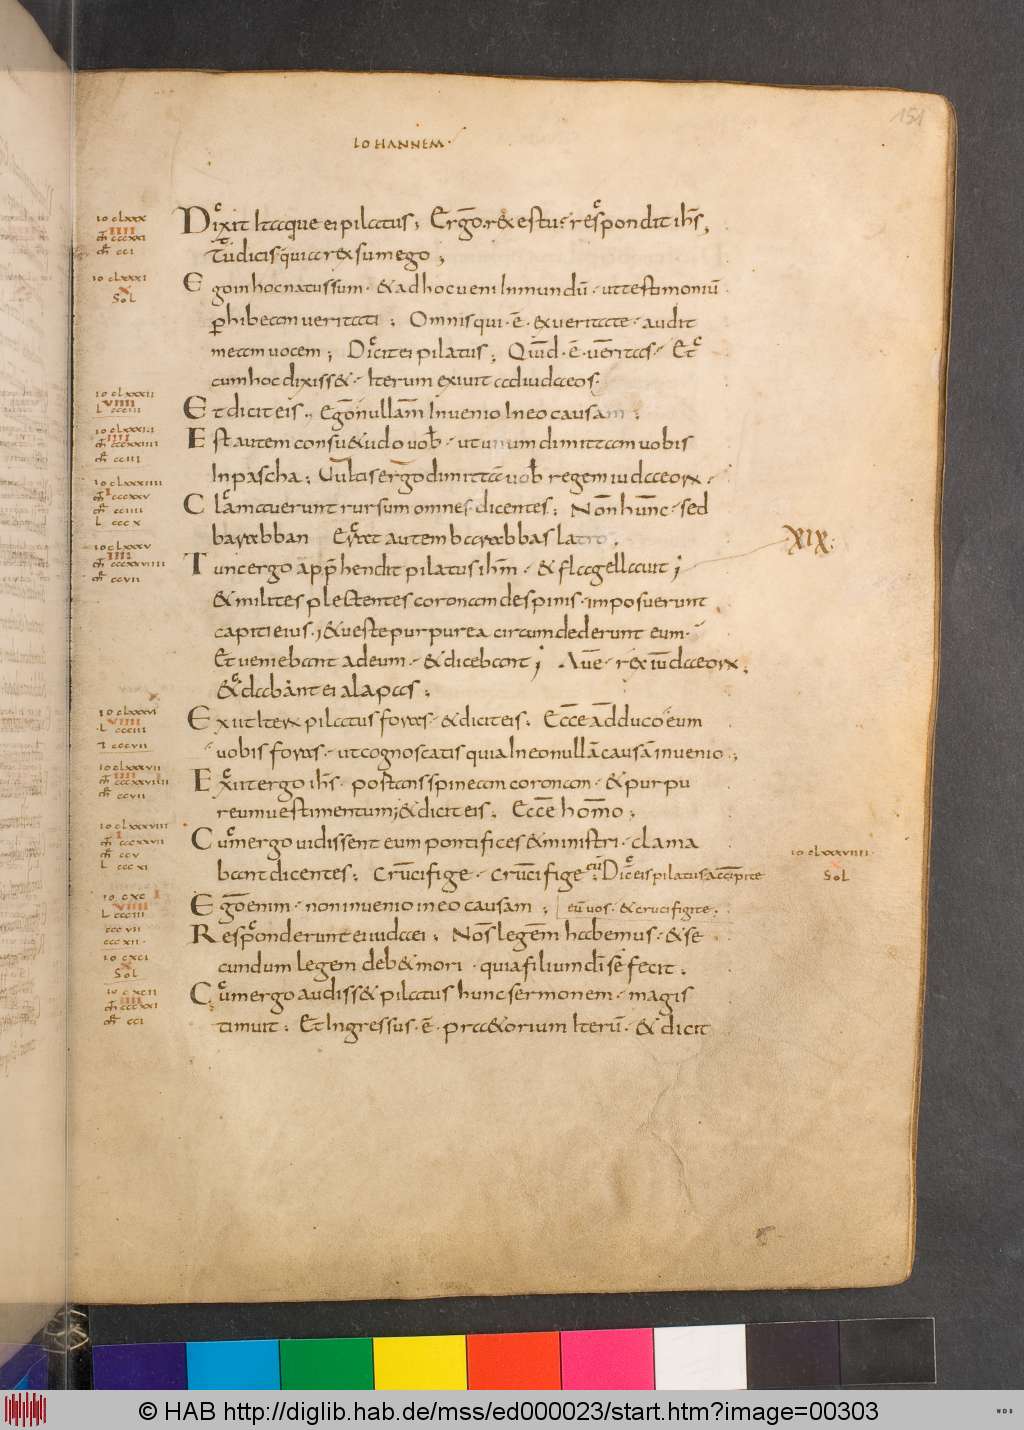 151
IOHANNEM.
Dixit itaque ei pilatus; Ergo rex es tu. respondit ihs,
Tu dicis quia rex sum ego;
Ego in hoc natus sum. & ad hoc veni in mundū. ut testimoniū
phibeam veritati; Omnis qui. ē. ex veritate. audit
meam vocem; Dicit ei pilatus; Quid. ē. veritas. Et
cum hoc dixiss&. Iterum exivit ad iudaeos.
Et dicit eis. Ego nullam Invenio In eo causam;
Est autem consu&udo vob. ut unum dimittam vobis
In pascha; Vultis ergo dimittā vob regem iudaeorx.
Clamaverunt rursum omnes. dicentes; Non hunc. sed
barabban Erat autem barabbas latro.
XIX.
Tunc ergo apphendit pilatus ihm. & flagellavit;
& milites plectentes coronam de spinis. imposuerunt
capiti eius; & veste purpurea circumdederunt eum.
Et veniebant ad eum. & dicebant; Ave. rex iudaeorx;
& dabant ei alapas;
Exiit Iterx pilatus foras. & dicit eis; Ecce adduco eum
vobis foras. ut cognoscatis quia In eo nullā causā invenio;
Exiit ergo ihs. portans spineam coronam. & purpu
reum vestimentum; & dicit eis; Ecce homo;
Cum ergo vidissent eum pontifices & ministri. clama
bant dicentes; Crucifige. crucifige eū; Dic eis pilatus Accipite
Ego enim. non invenio in eo causam; eū vos. & crucifigite.
Responderunt ei iudaei; Nos legem habemus. & se
cundum legem deb& mori. quia filium di se fecit;
Cum ergo audiss& pilatus hunc sermonem. magis
timuit; Et Ingressus. ē. pra&orium Iterū. & dicit
IO CLXXX
IIII
CCI
IO CLXXXI
X
Sol
IO CLXXXII
VIIII
IO CLXXXIII
IIII
IO CLXXXIIII
I
L CCCX
IO CLXXXV
IIII
CCVII
IO CLXXXVI
VIIII
IO CLXXXVII
IIII
CCVII
IO CLXXXVIII
I
CCV
L CCCXI
IO CLXXXVIIII.
X
Sol
IO CXC
VIIII
L CCCIII
CCCVII
CCCXII.
IO CXCI
X
Sol
IO CXCII
IIII
CCI
© HAB http://diglib.hab.de/mss/ed000023/start.htm?image=00303
WDB